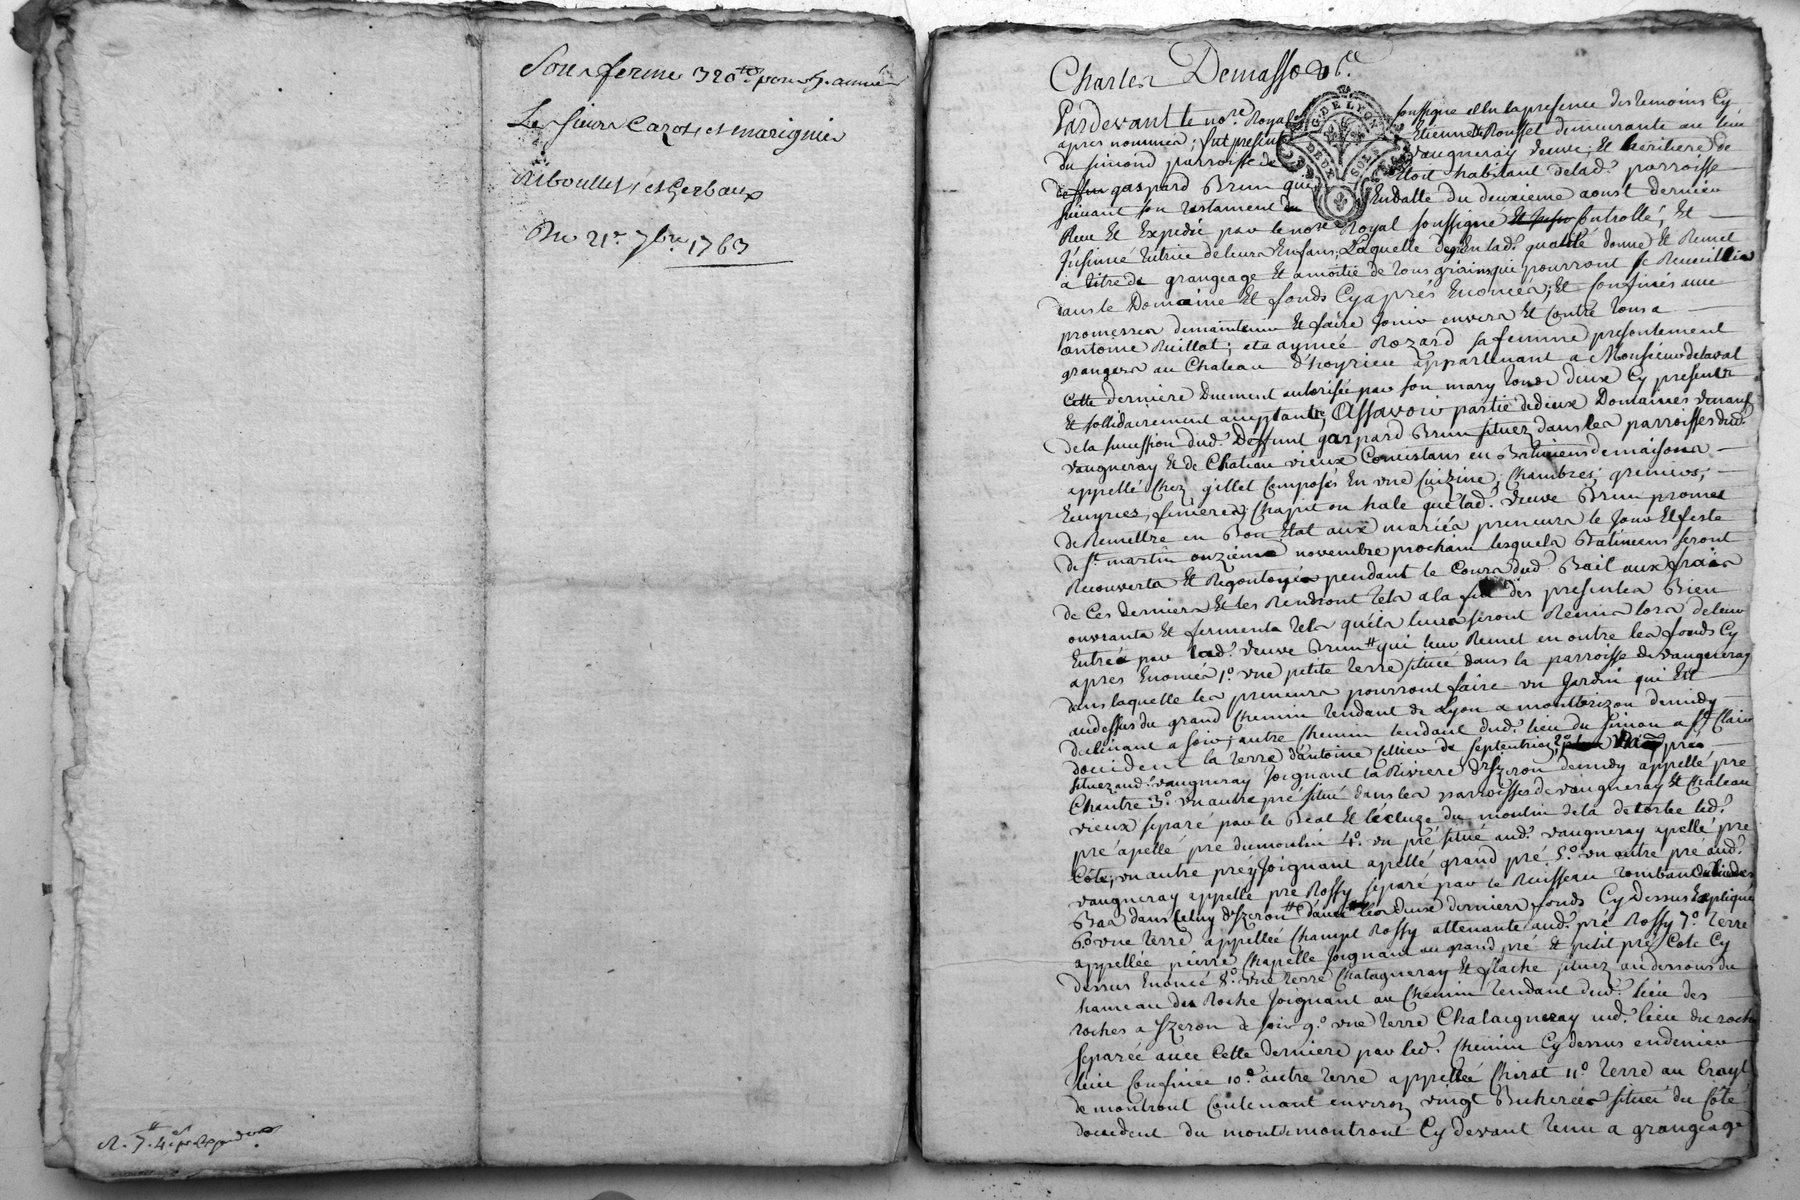 Sous ferme 320 tt pour 7 années
Les sieurs Carot, et marignier
Riboullet, et Gerbaux
Du 21e 7bre 1763
Charles Demasso &c.
G. DE LYON
DEUX SOLS
Pardevant le no.re Royal soussigné et En la presence des temoins Cy
apres nommes; fut present Etiennete Rousset demeurante au lieu
du simond parroisse de vaugneray veuve; et heritiere de
gaspard Brun qui Etoit habitant de lad.e parroisse
suivant son testament En datte du deuxieme aoust dernier
Receu Et Expedié par le no.re Royal soussigné Controllé; Et
a titre de grangeage Et a moitié de tous grains qui pourront se Recueillir
dans le Domaine Et fonds Cy aprés Enoncés; Et Confinés avec
promesses de maintenir Et faire jouir envers Et Contre tous a
antoine Ruillat; et a aymée Rozard sa femme presentement
grangers au Chateau d'hoyrieu appartenant a Monsieur delaval
Cette derniere Duement autorisée par son mary tous deux Cy presents
Et sollidairement acceptants; Assavoir partie de deux Domaines venant
de la succession dud.t Deffunt gaspard Brun situez dans les parroisses dud.t
vaugneray Et de Chateau vieux Consistans en Batimens de maisons
appellé Chez gillet Composés En une Cuizine; Chambres; greniers;
Ecuyries, finieres; Chapit ou hale que lad.e veuve Brun promet
de Remettre en Bon Etat aux mariés preneurs le jour Et feste
de s.t martin onzieme novembre prochain lesquels Batimens seront
Recouverts Et Regontoyés pendant le Cours dud.t Bail aux frais
de Ces derniers Et les Rendront tels a la fin des presentes Bien
ouvrants Et ferments tels quils leurs seront Remis lors de leur
Entrée par lad.e veuve Brun tt qui leur Remet en outre les fonds Cy
apres Enoncés 1.o une petite terre située dans la parroisse de vaugneray
dans laquelle les preneurs pourront faire un Jardin qui Est
au dessus du grand Chemin tendant de Lyon a montbrizon de midy
du levant a soir; autre Chemin tendant dud.t lieu du simon a s.t Clair
doccident la terre d'antoine Cellier de septentrion; 2.o pré
situez aud.t vaugneray Joignant la Riviere d'Yzeron de midy appellé pre
Chantre 3.o un autre pré situé dans les parroisses de vaugneray Et Chateau
vieux separé par le Beal Et l'écluze du moulin dela detorbe led.t
pré apellé pré du moulin 4.o un pré situé aud.t vaugneray apellé pré
Côte; un autre pré y Joignant apellé grand pré 5.o un autre pré aud.t
vaugneray appellé pre Rossy separé par le Ruisseau tombant
Bas dans Celuy d'Yzeron tt d'avec les deux derniers fonds Cy Dessus Expliqués
6.o une terre appellée Champt Rossy attenante aud.t pré Rossy 7.o terre
appellée pierre Chapelle Joignant au grand pré Et petit pré Cote Cy
dessus Enoncé 8.o une terre Chatagneray Et flache situez au dessous du
hameau des Roche Joignant au Chemin tendant dud.t lieu des
roches a Yzeron de soir 9.o une terre Chataigneray aud.t lieu des roches
separée avec Cette derniere par led.t Chemin Cy dessus en dernier
lieu Confinée 10.o autre terre appellée Chirat 11.o terre au Crayt
de montront Contenant environ vingt Bicherées située du Côté
doccident du mont montront Cy devant tenu a grangeage